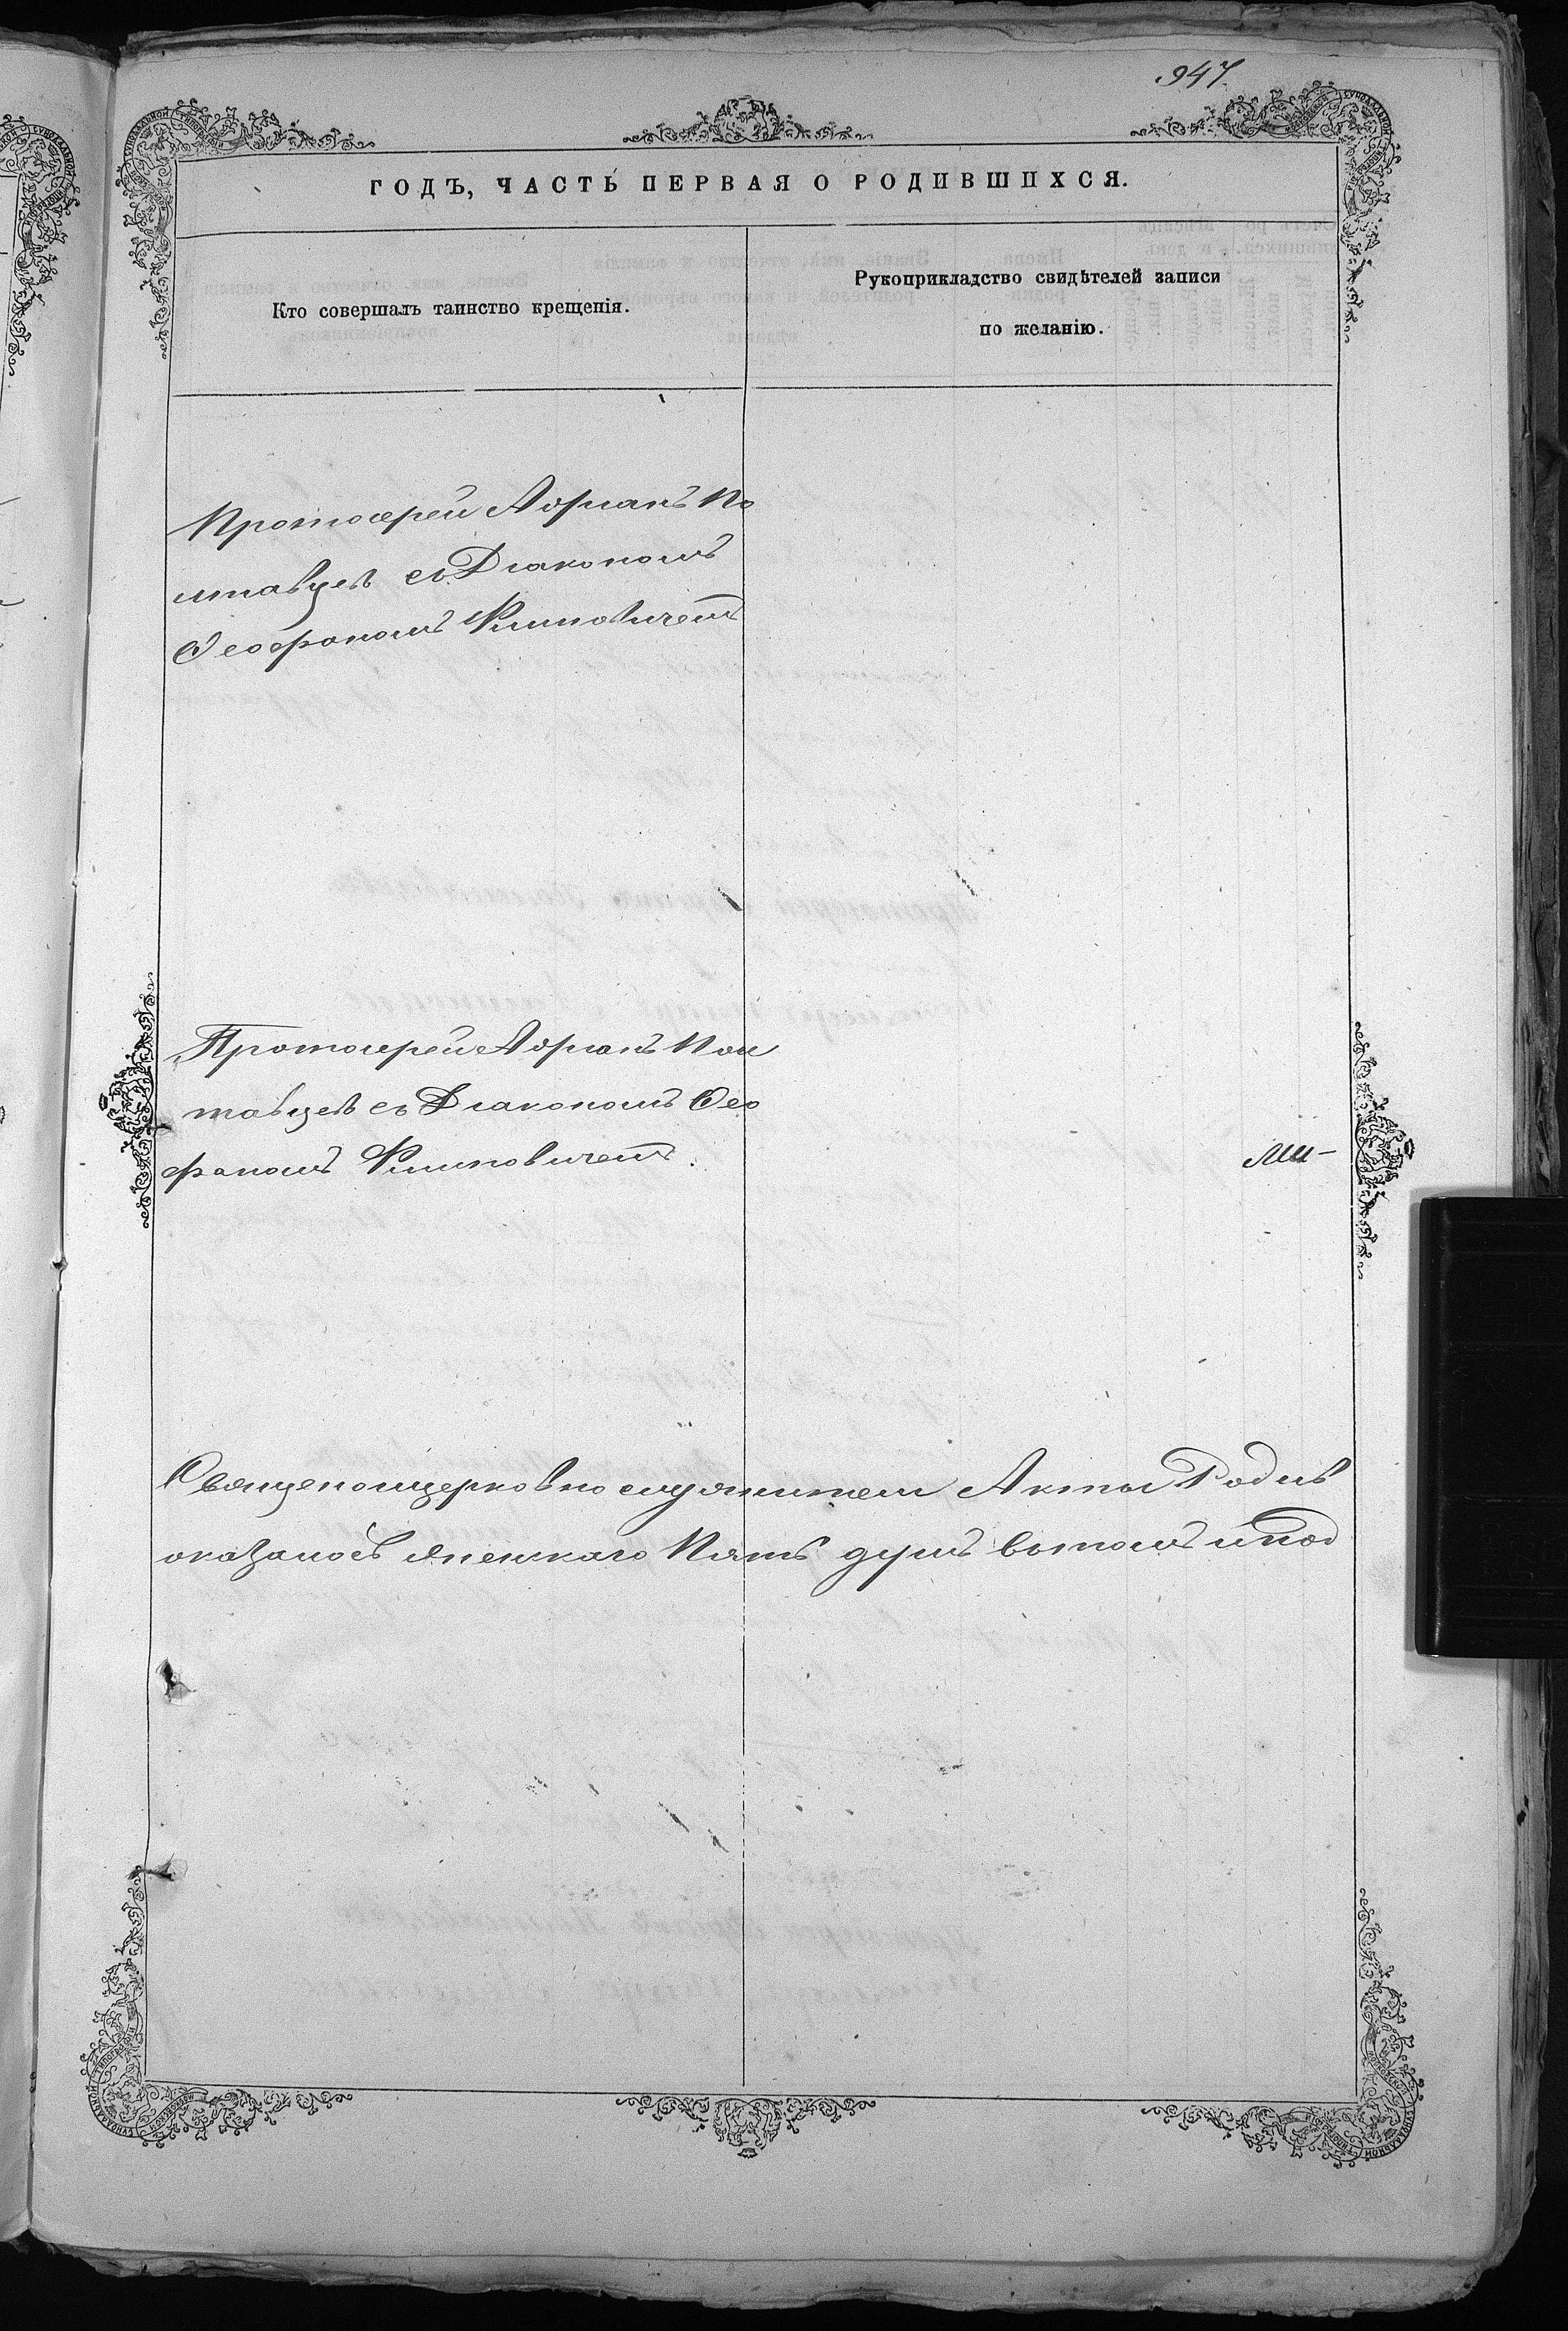 947.
ГОДЪ, ЧАСТЬ ПЕРВАЯ О РОДИВШИХСЯ.
Кто совершалъ таинство крещенія.
Рукоприкладство свидѣтелей записи
по желанію.
Протоіерей Адріанъ По
лтавцевъ съ Діакономъ
Ѳеофаномъ
Протоіерей Адріанъ Пол
тавцевъ съ Діакономъ Ѳео
фаномъ
Священноицерковнослужители Акты Родив
оказалось женскаго Пять душъ вътомъ ипод